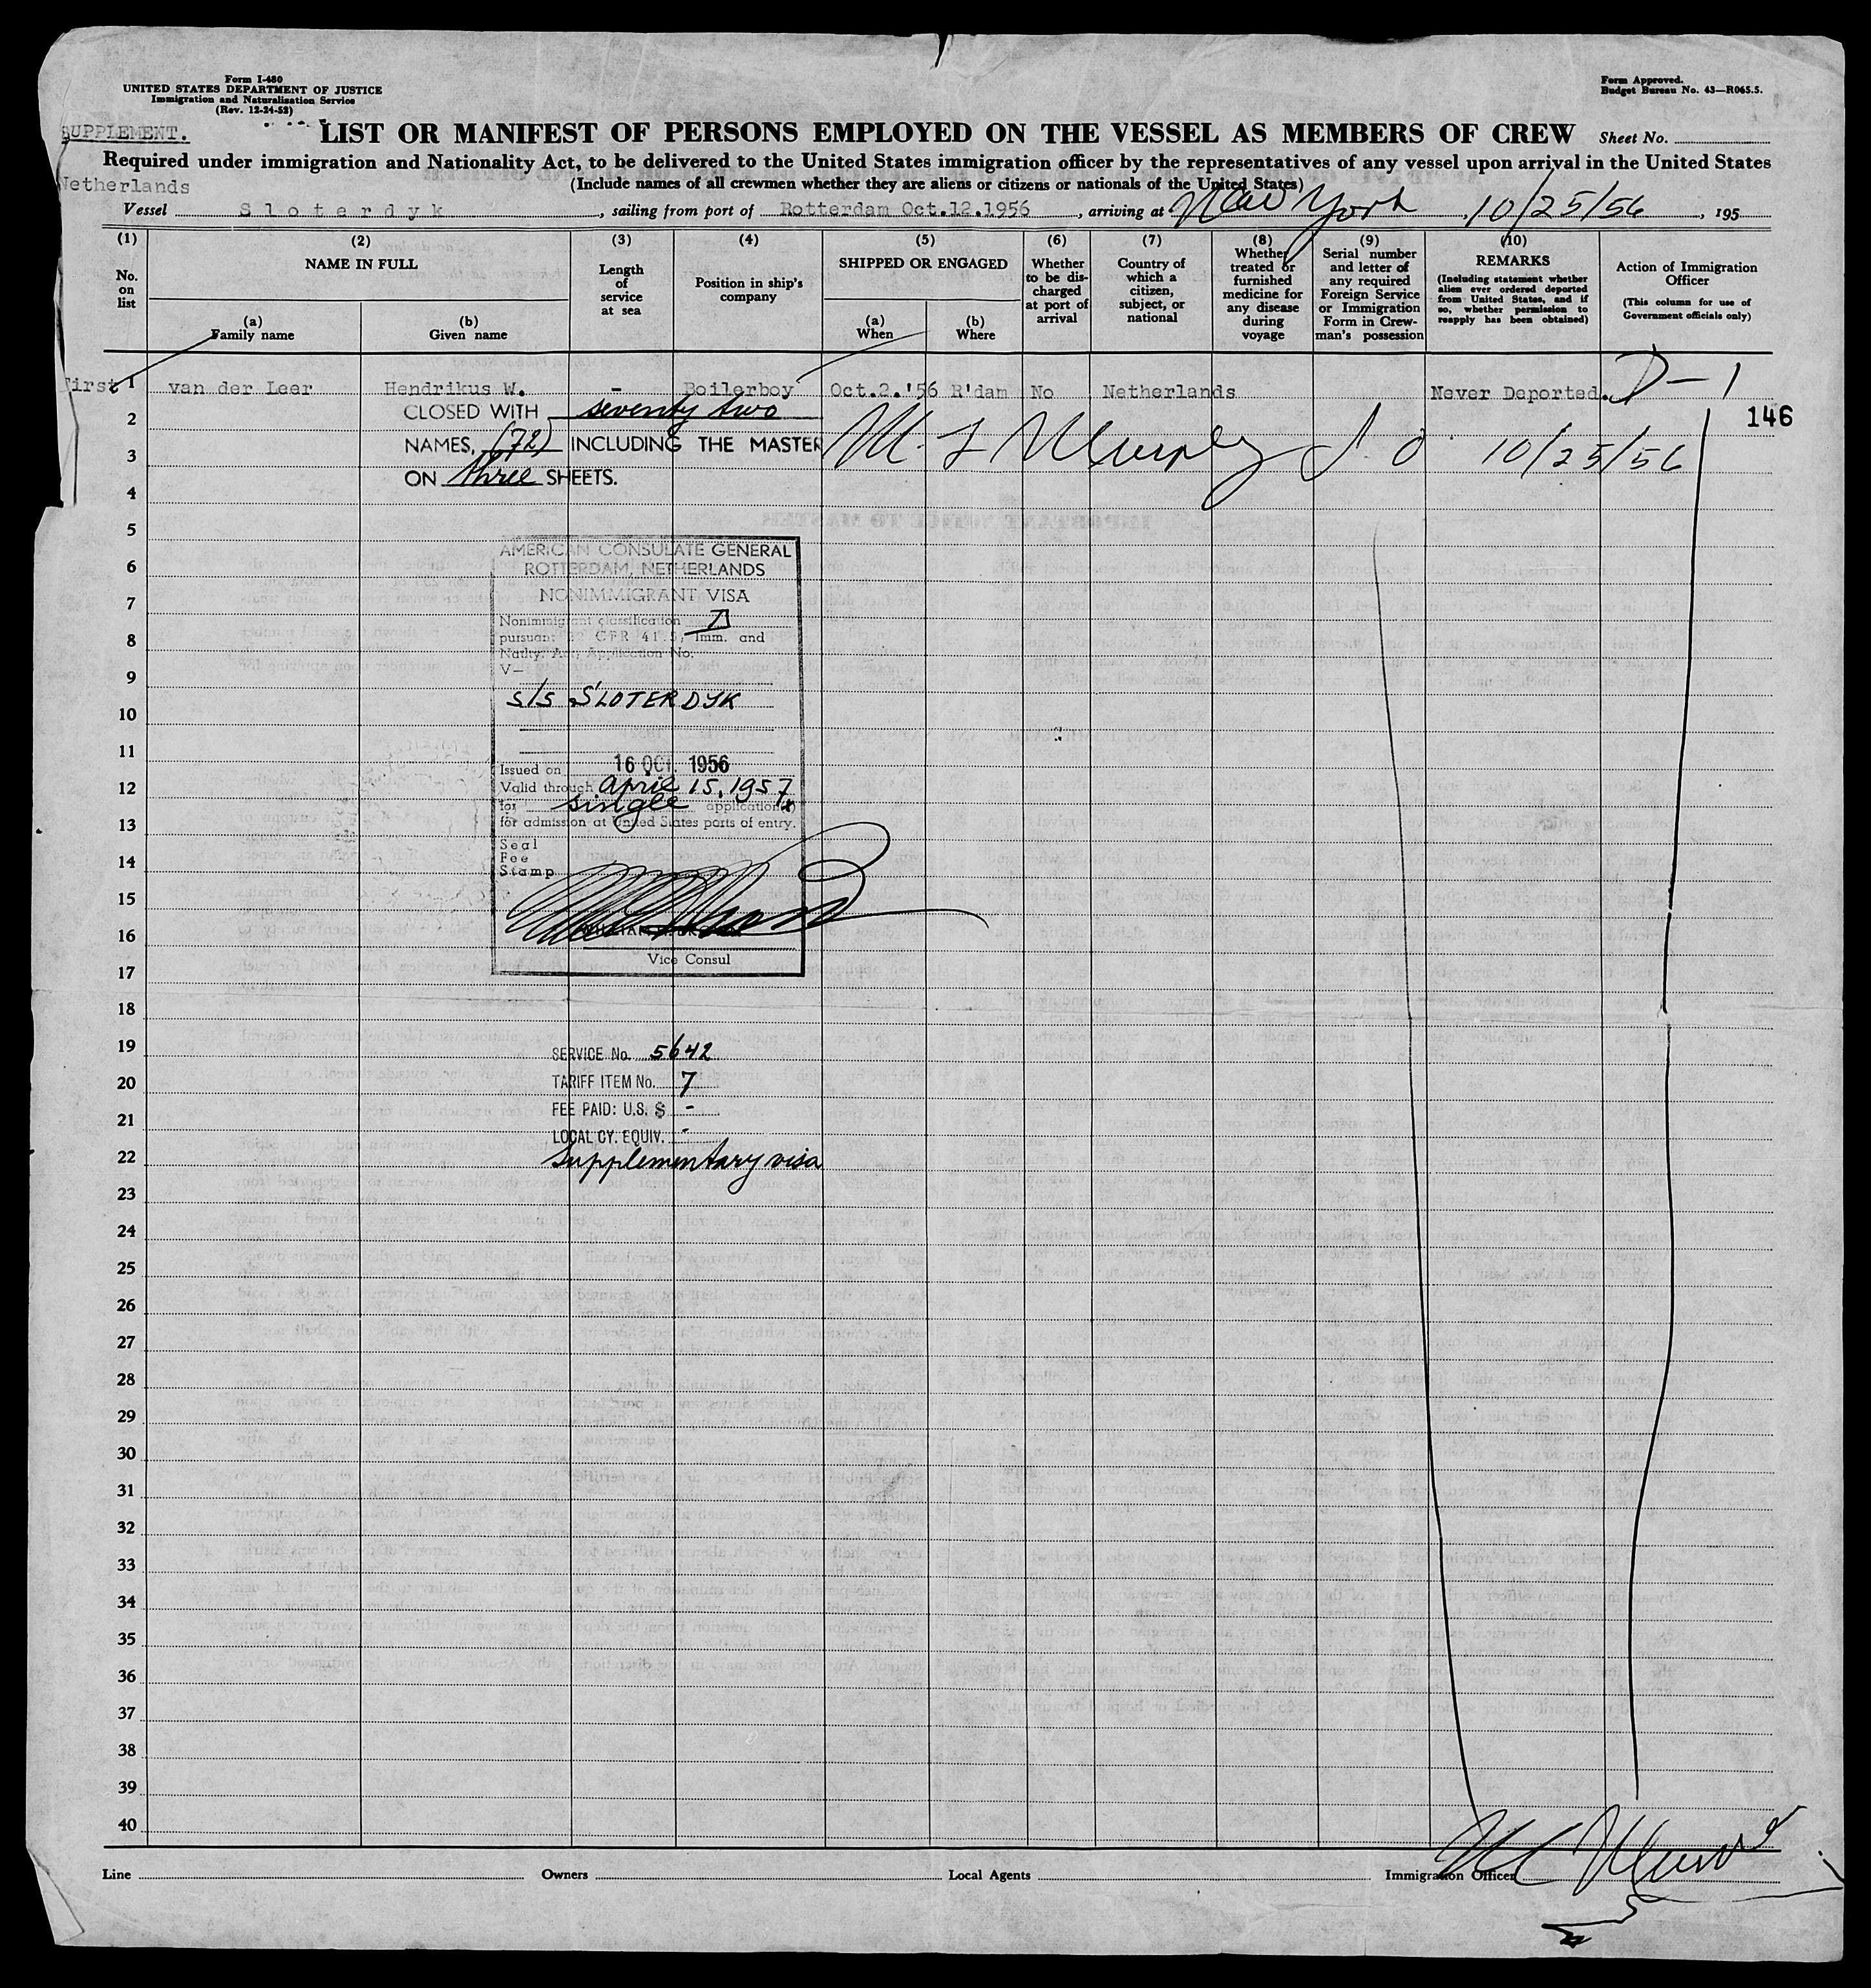 Form I-480
UNITED STATES DEPARTMENT OF JUSTICE
Immigration and Naturalization Service
(Rev. 12-24-52)
Form Approved.
Budget Bureau No. 43—R065.5.
SUPPLEMENT.
LIST OR MANIFEST OF PERSONS EMPLOYED ON THE VESSEL AS MEMBERS OF CREW
Sheet No.
Required under immigration and Nationality Act, to be delivered to the United States immigration officer by the representatives of any vessel upon arrival in the United States
Netherlands
(Include names of all crewmen whether they are aliens or citizens or nationals of the United States)
Vessel Sloterdyk, sailing from port of Rotterdam Oct.12.1956, arriving at New York, 10/25/56, 195
(1) (2) (3) (4) (5) (6) (7) (8) (9) (10)
No. on list
NAME IN FULL
(a) Family name
(b) Given name
Length of service at sea
Position in ship's company
SHIPPED OR ENGAGED
(a) When
(b) Where
Whether to be discharged at port of arrival
Country of which a citizen, subject, or national
Whether treated or furnished medicine for any disease during voyage
Serial number and letter of any required Foreign Service or Immigration Form in Crewman's possession
REMARKS
(Including statement whether alien ever ordered deported from United States, and if so, whether permission to reapply has been obtained)
Action of Immigration Officer
(This column for use of Government officials only)
First 1 van der Leer Hendrikus W. - Boilerboy Oct.2.'56 R'dam No Netherlands Never Deported. D-1
146
2 CLOSED WITH seventy two
3 NAMES, (72) INCLUDING THE MASTER M L Murphy 10/25/56
4 ON three SHEETS.
5
AMERICAN CONSULATE GENERAL
6 ROTTERDAM, NETHERLANDS
7 NONIMMIGRANT VISA
Nonimmigrant classification D
8 pursuant 22 CFR 41.5; Imm. and
Natlty. Act; Application No.
9 V—
S/S SLOTERDYK
10
11
Issued on 16 OCT. 1956
12 Valid through April 15, 1957
for single application(s)
13 for admission at United States ports of entry.
Seal
14 Fee
Stamp
15
16
Vice Consul
17
18
19 SERVICE No. 5642
20 TARIFF ITEM No. 7
FEE PAID: U.S. $ -
21 LOCAL CY. EQUIV. -
22 Supplementary visa
23
24
25
26
27
28
29
30
31
32
33
34
35
36
37
38
39
40
Line
Owners
Local Agents
Immigration Officer